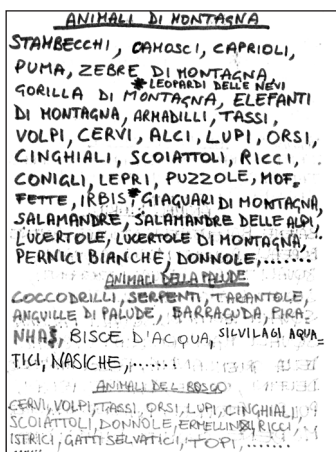 ANIMALI DI MONTAGNA
STAMBECCHI, CAMOSCI, CAPRIOLI,
PUMA, ZEBRE DI MONTAGNA,
*LEOPARDI DELLE NEVI
GORILLA DI MONTAGNA, ELEFANTI
DI MONTAGNA, ARMADILLI, TASSI,
VOLPI, CERVI, ALCI, LUPI, ORSI,
CINGHIALI, SCOIATTOLI, RICCI,
CONIGLI, LEPRI, PUZZOLE, MOF-
FETTE, IRBIS,* GIAGUARI DI MONTAGNA,
SALAMANDRE, SALAMANDRE DELLE ALPI,
LUCERTOLE, LUCERTOLE DI MONTAGNA,
PERNICI BIANCHE, DONNOLE,.......
ANIMALI DELLA PALUDE
COCCODRILLI, SERPENTI, TARANTOLE,
ANGUILLE DI PALUDE, BARRACUDA, PIRA-
NHAS, BISCE D'ACQUA, SILVILAGI AQUA-
TICI, NASICHE,.......
ANIMALI DEL BOSCO
CERVI, VOLPI, TASSI, ORSI, LUPI, CINGHIALI,
SCOIATTOLI, DONNOLE, ERMELLINI, RICCI,
ISTRICI, GATTI SELVATICI, TOPI,.......